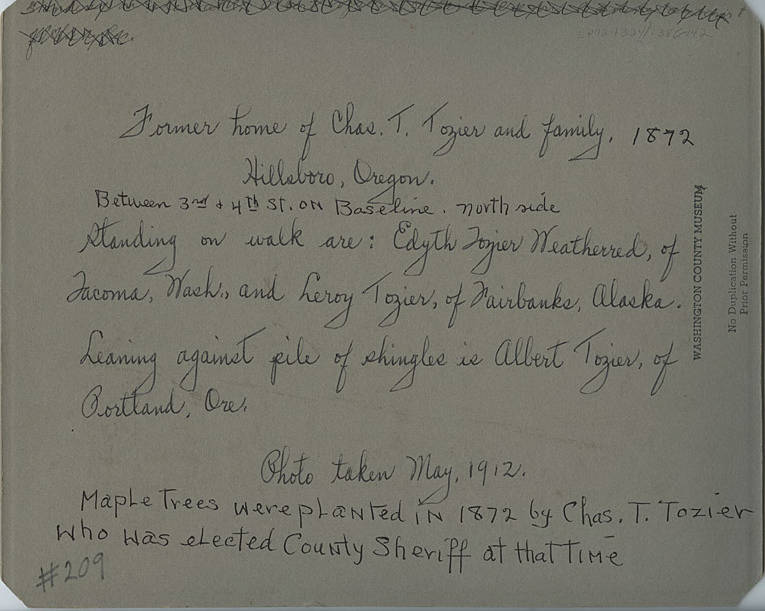 Former home of Chas. T. Tozier and family. 1872
Hillsboro, Oregon.
Between 3rd & 4th St. on Baseline. north side
Standing on walk are: Edyth Tozier Weatherred, of
Tacoma, Wash., and Leroy Tozier, of Fairbanks, Alaska.
Leaning against pile of shingles is Albert Tozier, of
Portland, Ore.
Photo taken May, 1912.
Maple Trees were planted in 1872 by Chas. T. Tozier
who was elected County Sheriff at that Time
#209
WASHINGTON COUNTY MUSEUM
No Duplication Without
Prior Permission